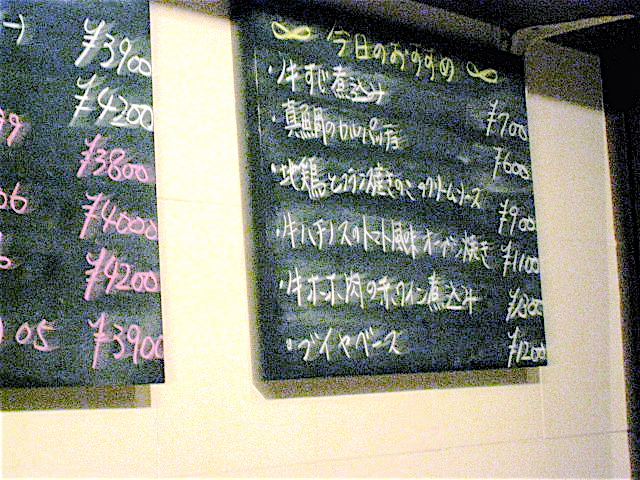 -)
¥3900
¥4200
99
¥3800
06
¥4000
¥4200
05
¥3900
∞ 今日のおすすめ ∞
・牛すじ煮込み ¥700
・真鯛のカルパッチョ ¥600
焼き クリームソース ¥900
・牛ハチノスのトマト風味オーブン焼き ¥1100
・牛ホホ肉の赤ワイン煮込み
・ブイヤベース ¥1200